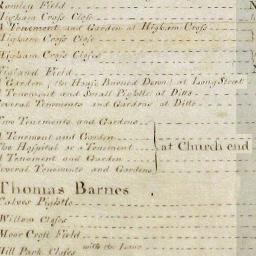 Romley Field
Higham Cross Close
A Tenement and Garden at Higham Cross
Higham Cross Close
Higham Cross Closes
Highland Field
A Garden (the House Burned Down) at Long Street
A Tenement and Small Pightle at Ditto
Several Tenements and Gardens at Ditto
Two Tenements and Gardens
A Tenement and Garden
The Hospital or a Tenement
A Tenement and Garden
Several Tenements and Gardens
at Church end
Thomas Barnes
Calves Pightle
Willow Closes
Moor Croft Field
Mill Park Closes with the Lane